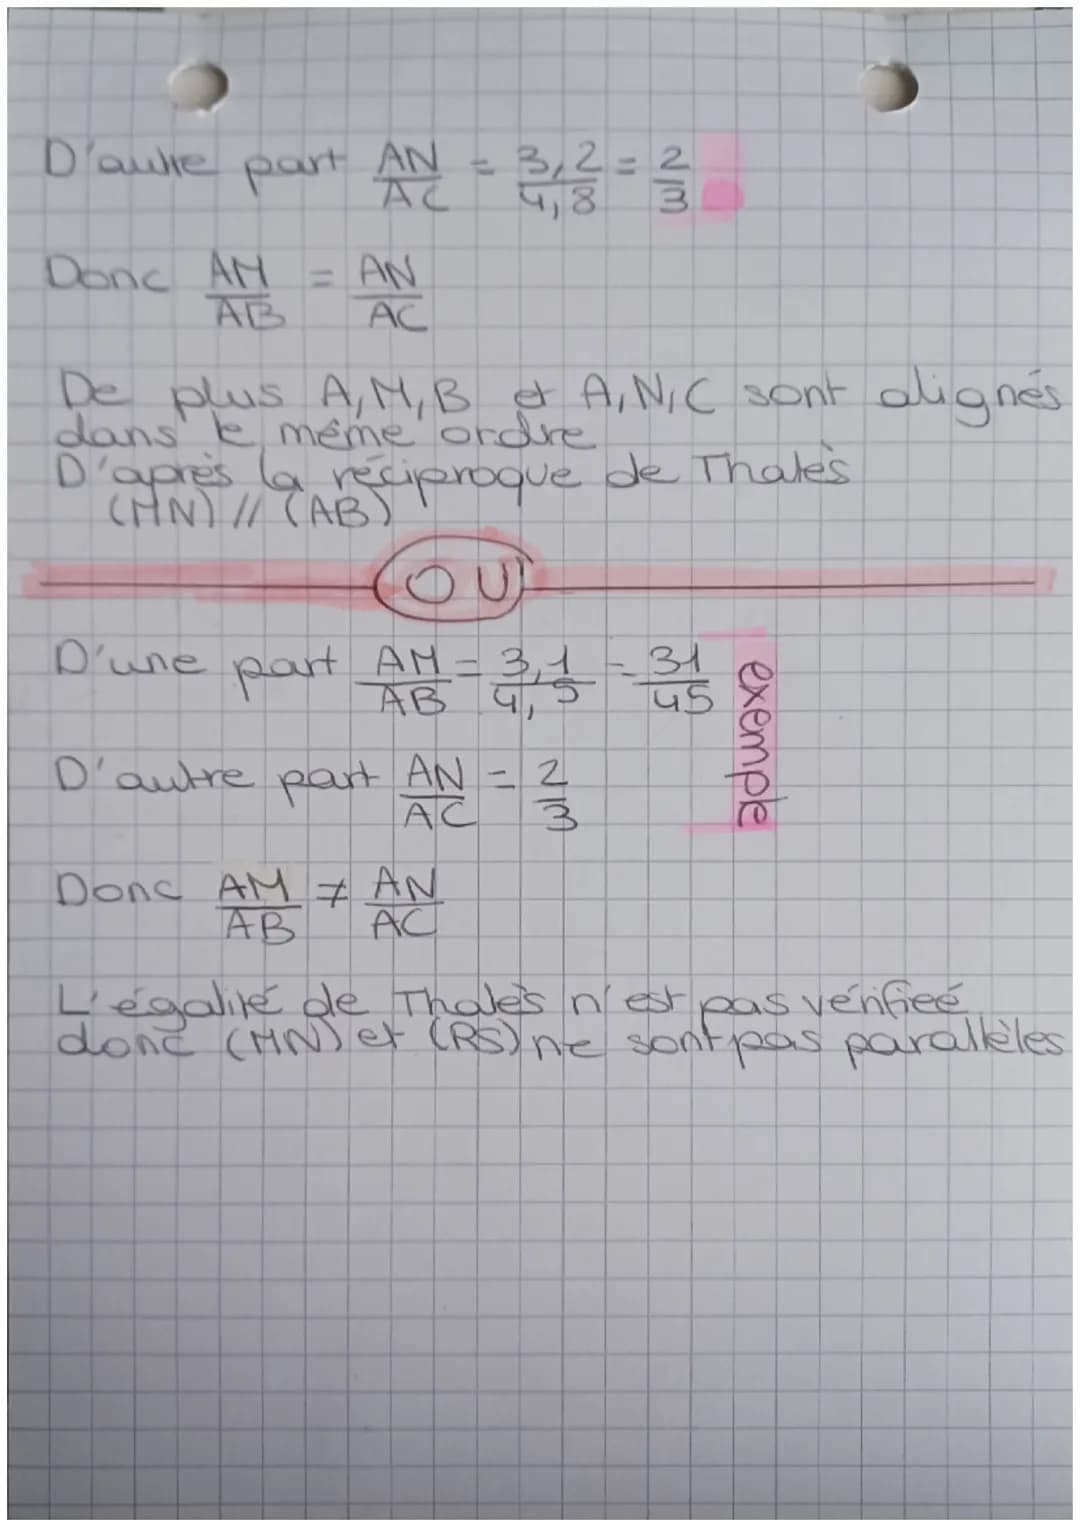 D'autre part AN/AC = 3,2/4,8 = 2/3
Donc AM/AB = AN/AC
De plus A,M,B et A,N,C sont alignés
dans le même ordre
D'après la réciproque de Thalès
(MN) // (AB)
OU
D'une part AM/AB = 3,1/4,5 = 31/45
exemple
D'autre part AN/AC = 2/3
Donc AM/AB ≠ AN/AC
L'égalité de Thalès n'est pas vérifieé
donc (MN) et (RS) ne sont pas parallèles